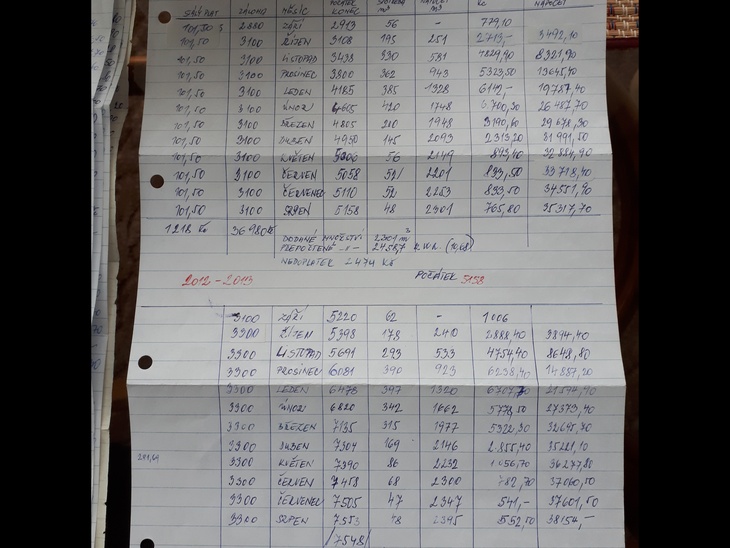 STÁLÝ PLAT ZÁLOHA MĚSÍC POČÁTEK KONEC SPOTŘEBA m3 NÁPOČET m3 Kč NÁPOČET
101,50 2880 ZÁŘÍ 2913 56 - 779,10
101,50 3100 ŘÍJEN 3108 195 251 2713,- 3492,10
101,50 3100 LISTOPAD 3438 330 581 4829,80 8321,90
101,50 3100 PROSINEC 3800 362 943 5323,50 13645,40
101,50 3100 LEDEN 4185 385 1328 6142,- 19787,40
101,50 3100 ÚNOR 4605 420 1748 6700,30 26487,70
101,50 3100 BŘEZEN 4805 200 1948 3190,60 29678,30
101,50 3100 DUBEN 4950 145 2093 2313,20 31991,50
101,50 3100 KVĚTEN 5006 56 2149 893,40 32884,90
101,50 3100 ČERVEN 5058 52 2201 833,50 33718,40
101,50 3100 ČERVENEC 5110 52 2253 833,50 34551,90
101,50 3100 SRPEN 5158 48 2301 765,80 35317,70
1218 Kč 36980 Kč
DODANÉ MNOŽSTVÍ 2301 m3
PŘEPOČTENÉ -"- 24587 KWh (10,68)
NEDOPLATEK 2474 Kč
2012-2013 POČÁTEK 5158
3100 ZÁŘÍ 5220 62 - 1006
3300 ŘÍJEN 5398 178 240 2888,40 3894,40
3300 LISTOPAD 5691 293 533 4754,40 8648,80
3300 PROSINEC 6081 390 923 6238,40 14887,20
3300 LEDEN 6478 397 1320 6707,20 21594,40
3300 ÚNOR 6820 342 1662 5778,50 27373,40
3300 BŘEZEN 7135 315 1977 5322,30 32695,70
3300 DUBEN 7304 169 2146 2855,40 35221,10
291,64
3300 KVĚTEN 7390 86 2232 1056,70 36277,80
3300 ČERVEN 7458 68 2300 782,70 37060,50
3300 ČERVENEC 7505 47 2347 541,- 37601,50
3300 SRPEN 7553 48 2395 552,50 38154,-
/7548/